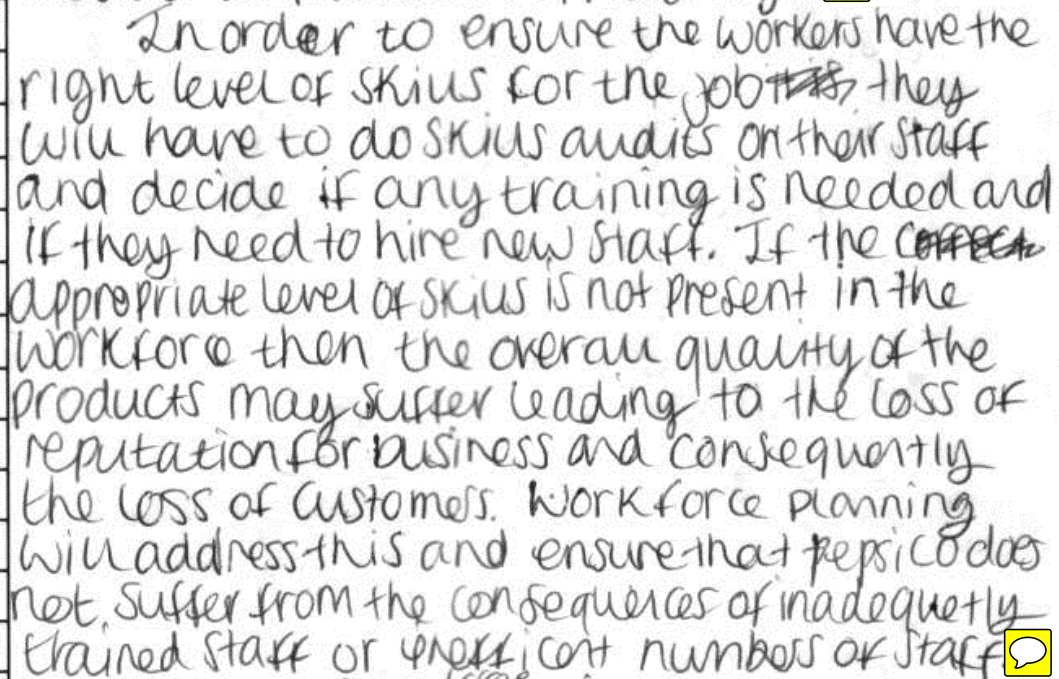 In order to ensure the workers have the
right level of skills for the job they
will have to do skills audits on their staff
and decide if any training is needed and
if they need to hire new staff. If the correct
appropriate level of skills is not present in the
workforce then the overall quality of the
products may suffer leading to the loss of
reputation for business and consequently
the loss of customers. Workforce planning
will address this and ensure that pepsico does
not suffer from the consequences of inadequetly
trained staff or inefficent numbers of staff.